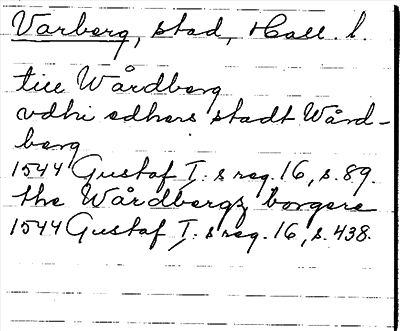 Varberg, stad, Hall. l.
till Wårdberg
vdhi edhers stadt Wård-
berg
1544 Gustaf I:s reg. 16, s. 89.
the Wårdbergz borgere
1544 Gustaf I:s reg. 16, s. 438.